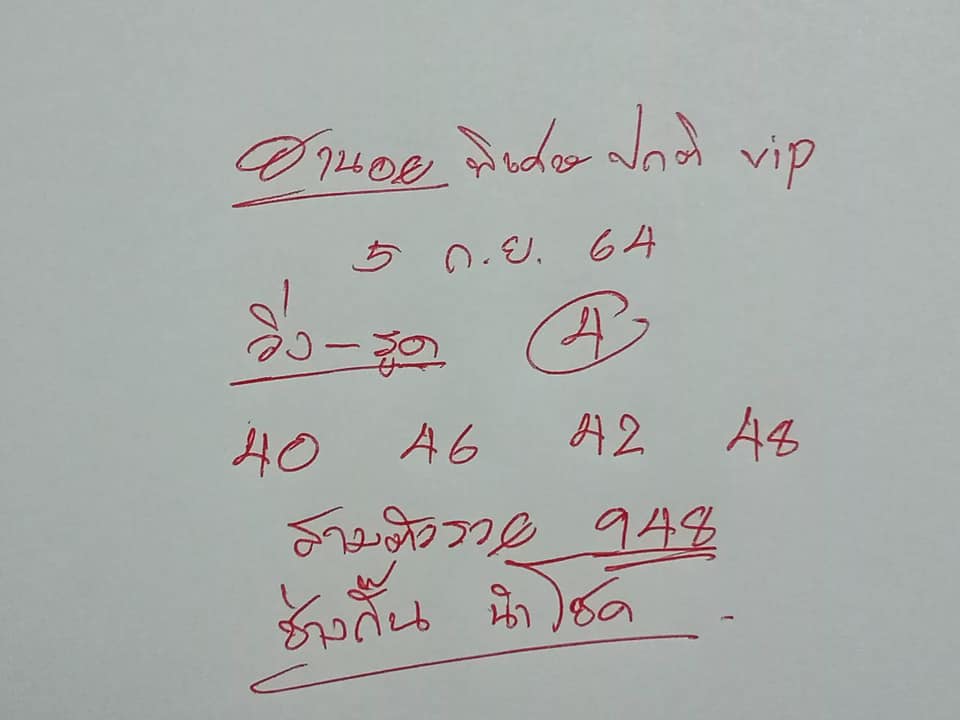 ฮานอย พิเศษ ปกติ vip
5 ก.ย. 64
วิ่ง-รูด 4
40 46 42 48
สามตัวรวย 948
ช่างกิ๊น นำโชค